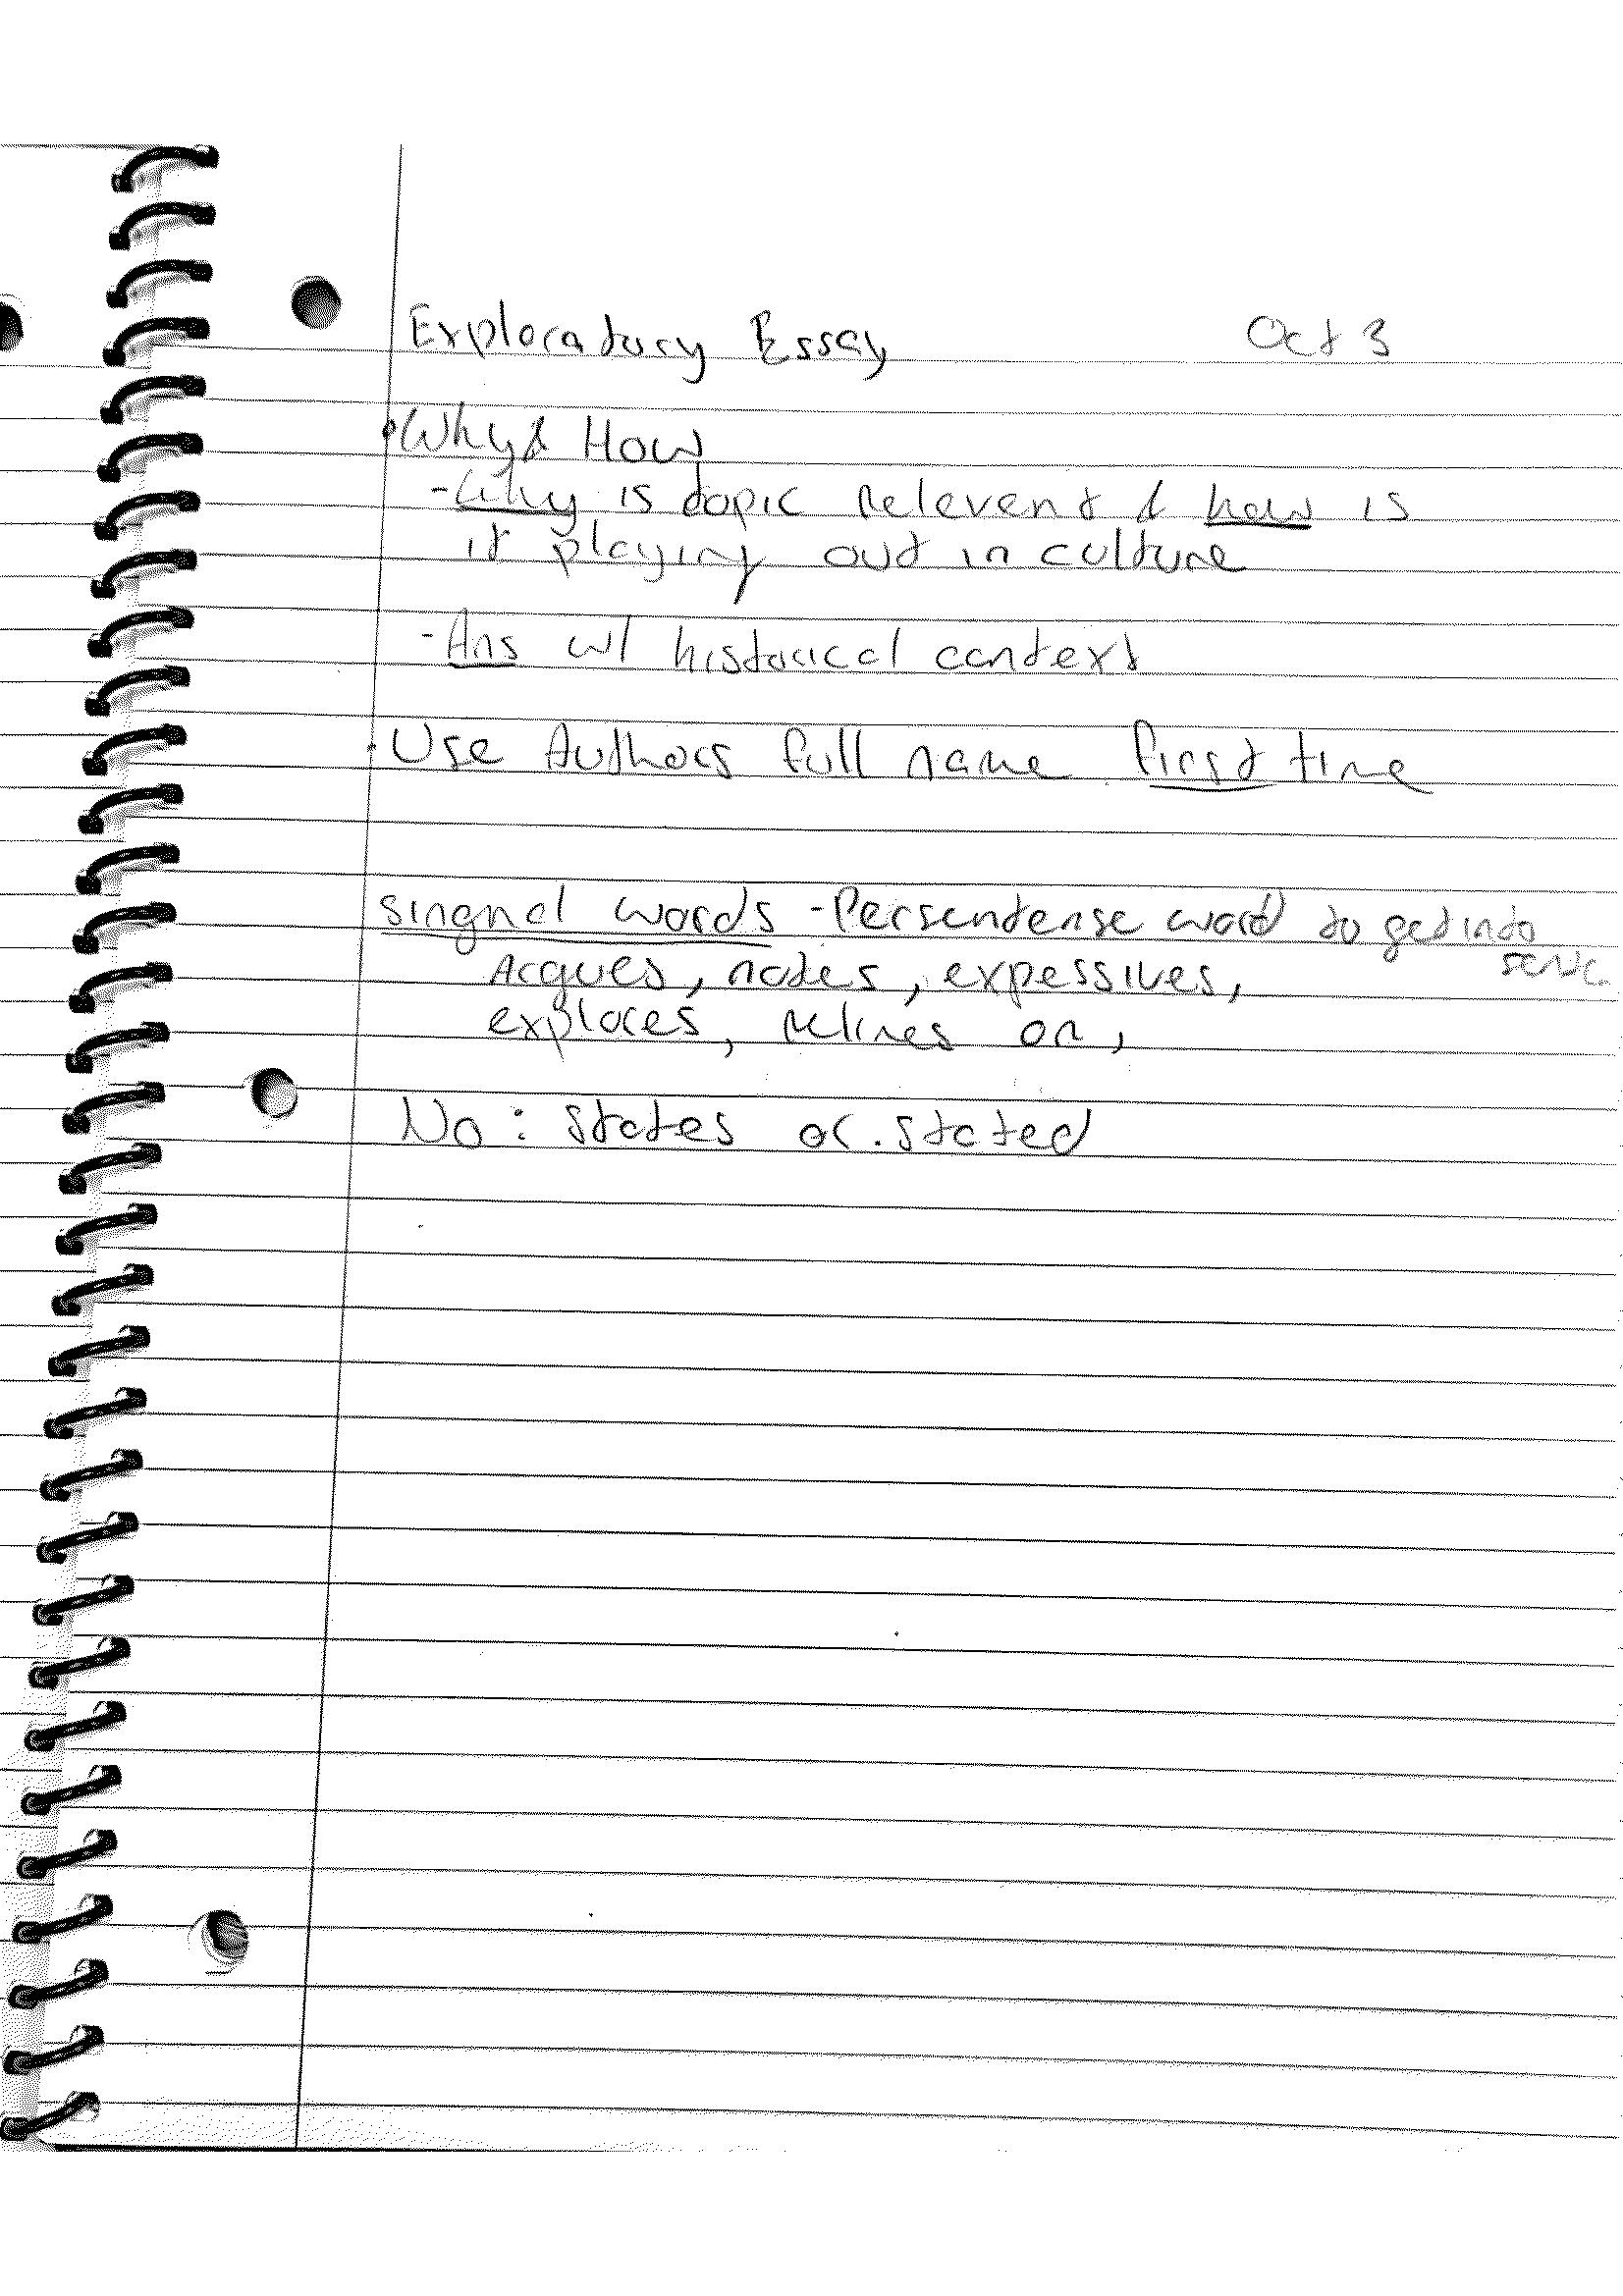 Exploratory Essay Oct 3
• Why & How
- Why is topic relevent & how is
it playing out in culture
- Ans w/ historical context
• Use Authors full name first time
singnal words - Persentense word to get into
sentc.
Argues, notes, expessives,
explores, relines on,
No: states or. stated